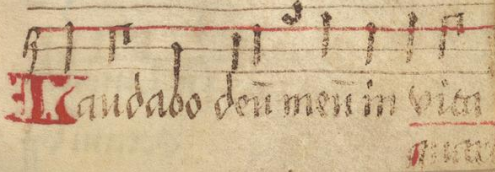 Laudabo deū meū in vita